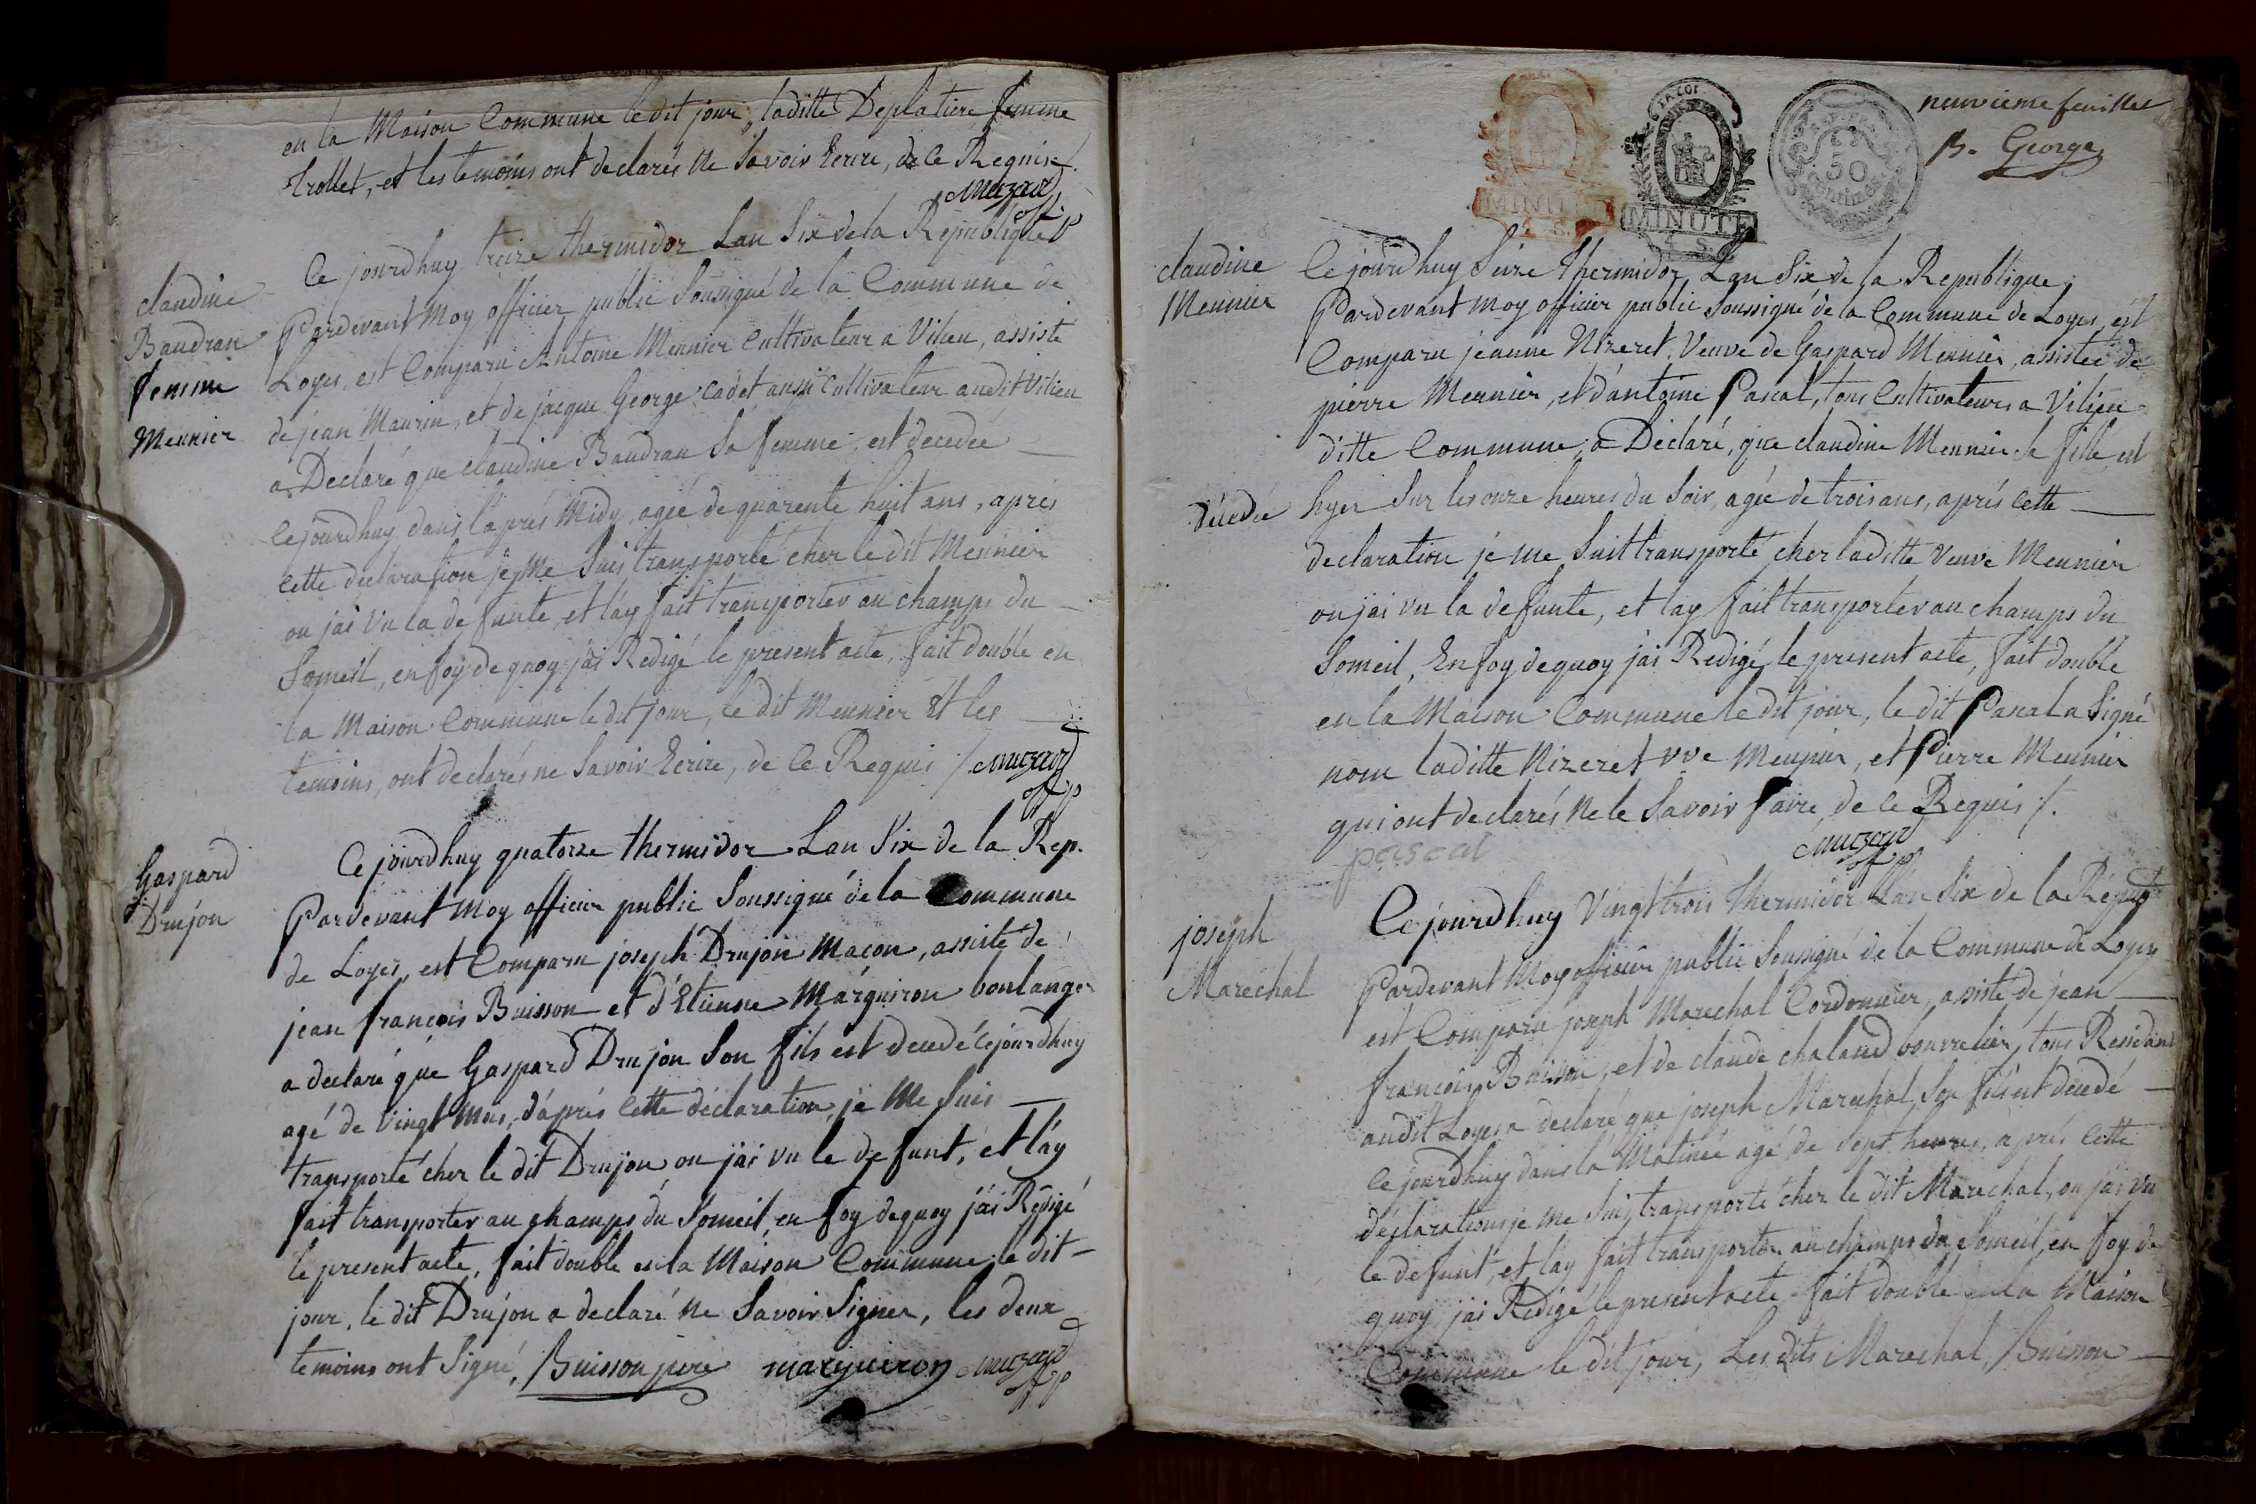 en la Maison Commune le dit jour, laditte Deplatiere femme
trollet, et les temoins ont declarés ne Savoir Ecrire, de ce Requis /.
Muzard
off. p
Claudine
Baudran
femme
Meunier
Ce jourdhuy treize thermidor Lan Six de la République
Pardevant Moy officier public Soussigné de la Commune de
Loyes, est Comparu Antoine Meunier Cultivateur a Vilieu, assisté
de jean Maurin, et de jacque George Cadet aussi Cultivateur audit Vilieu
a Declaré que Claudine Baudran Sa femme, est decedée
Cejourdhuy dans l'aprés Midy, agée de quarente huit ans, aprés
Cette declaration je Me Suis transporté cher le dit Meunier
ou j'ai Vu la defunte, et l'ay fait transporter au champs du
Someil, en foy de quoy j'ai Redigé le present acte, fait double en
la Maison Commune le dit jour, le dit Meunier Et les
temoins, ont declarés ne Savoir Ecrire, de Ce Requis /. Muzard
off. p
Gaspard
Drujon
Cejourdhuy quatorze thermidor Lan Six de la Rep.
Pardevant Moy officier public Soussigné de la Commune
de Loyes, est Comparu joseph Drujon Macon, assisté de
jean francois Buisson et d'Etienne Marguiron boulanger
a declaré que Gaspard Drujon Son fils est decedé Cejourdhuy
agé de Vingt Mois, d'après Cette declaration, je Me Suis
transporté cher le dit Drujon ou j'ai vu le defunt, et l'ay
fait transporter au champs du Someil, en foy dequoy j'ai Redigé
le present acte, fait double en la Maison Commune le dit
jour, le dit Drujon a declaré Ne Savoir Signer, les deux
temoins ont Signé, Buisson pere marguiron Muzard
off. p
MINUTE
4 S.
MINUTE
4 S.
50
Centimes
neuvieme feuillet
B. George
Claudine
Meunier
Ce jourdhuy Seize thermidor, Lan Six de la Republique,
Pardevant Moy officier public Soussigné de la Commune de Loyes, est
Comparu jeanne Nizeret, Veuve de Gaspard Meunier, assistée de
pierre Meunier, et d'antoine Pascal, tous Cultivateurs a Vilieu
ditte Commune, a Déclaré, que claudine Meunier Sa fille, est
Décedée hyer Sur les onze heures du Soir, agée de trois ans, aprés Cette
declaration je me Suit transporté cher laditte Veuve Meunier
ou j'ai vu la defunte, et l'ay fait transporter au champs du
Someil, En foy dequoy j'ai Redigé le present acte, fait double
en la Maison Commune le dit jour, le dit Pascal a Signé
nom laditte Nizeret vve Meunier, et Pierre Meunier
qui ont declarés Ne le Savoir faire, de Ce Requis /.
pascal
Muzard
off. p
joseph
Marechal
Cejourdhuy Vingt trois thermidor Lan Six de la Répub
Pardevant Moy officier public Soussigné de la Commune de Loyes
est Comparu joseph Marechal Cordonnier, assisté de jean
francois Buisson, et de claude chaland bourrelier, tous Residants
audit Loyes a declaré que joseph Marechal Son fils est decedé
Cejourdhuy dans la Matinée agé de Sept heures, aprés Cette
déclaration je Me Suis transporté cher le dit Marechal, ou j'ai vu
le defunt, et l'ay fait transporter au champs du Someil, en foy de
quoy j'ai Redigé le present acte fait double en la Maison
Commune le dit jour, Les dits Marechal, Buisson